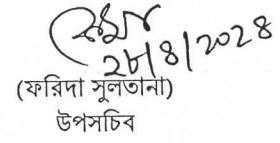 ২৮/৪/২০২৪
(ফরিদা সুলতানা)
উপসচিব